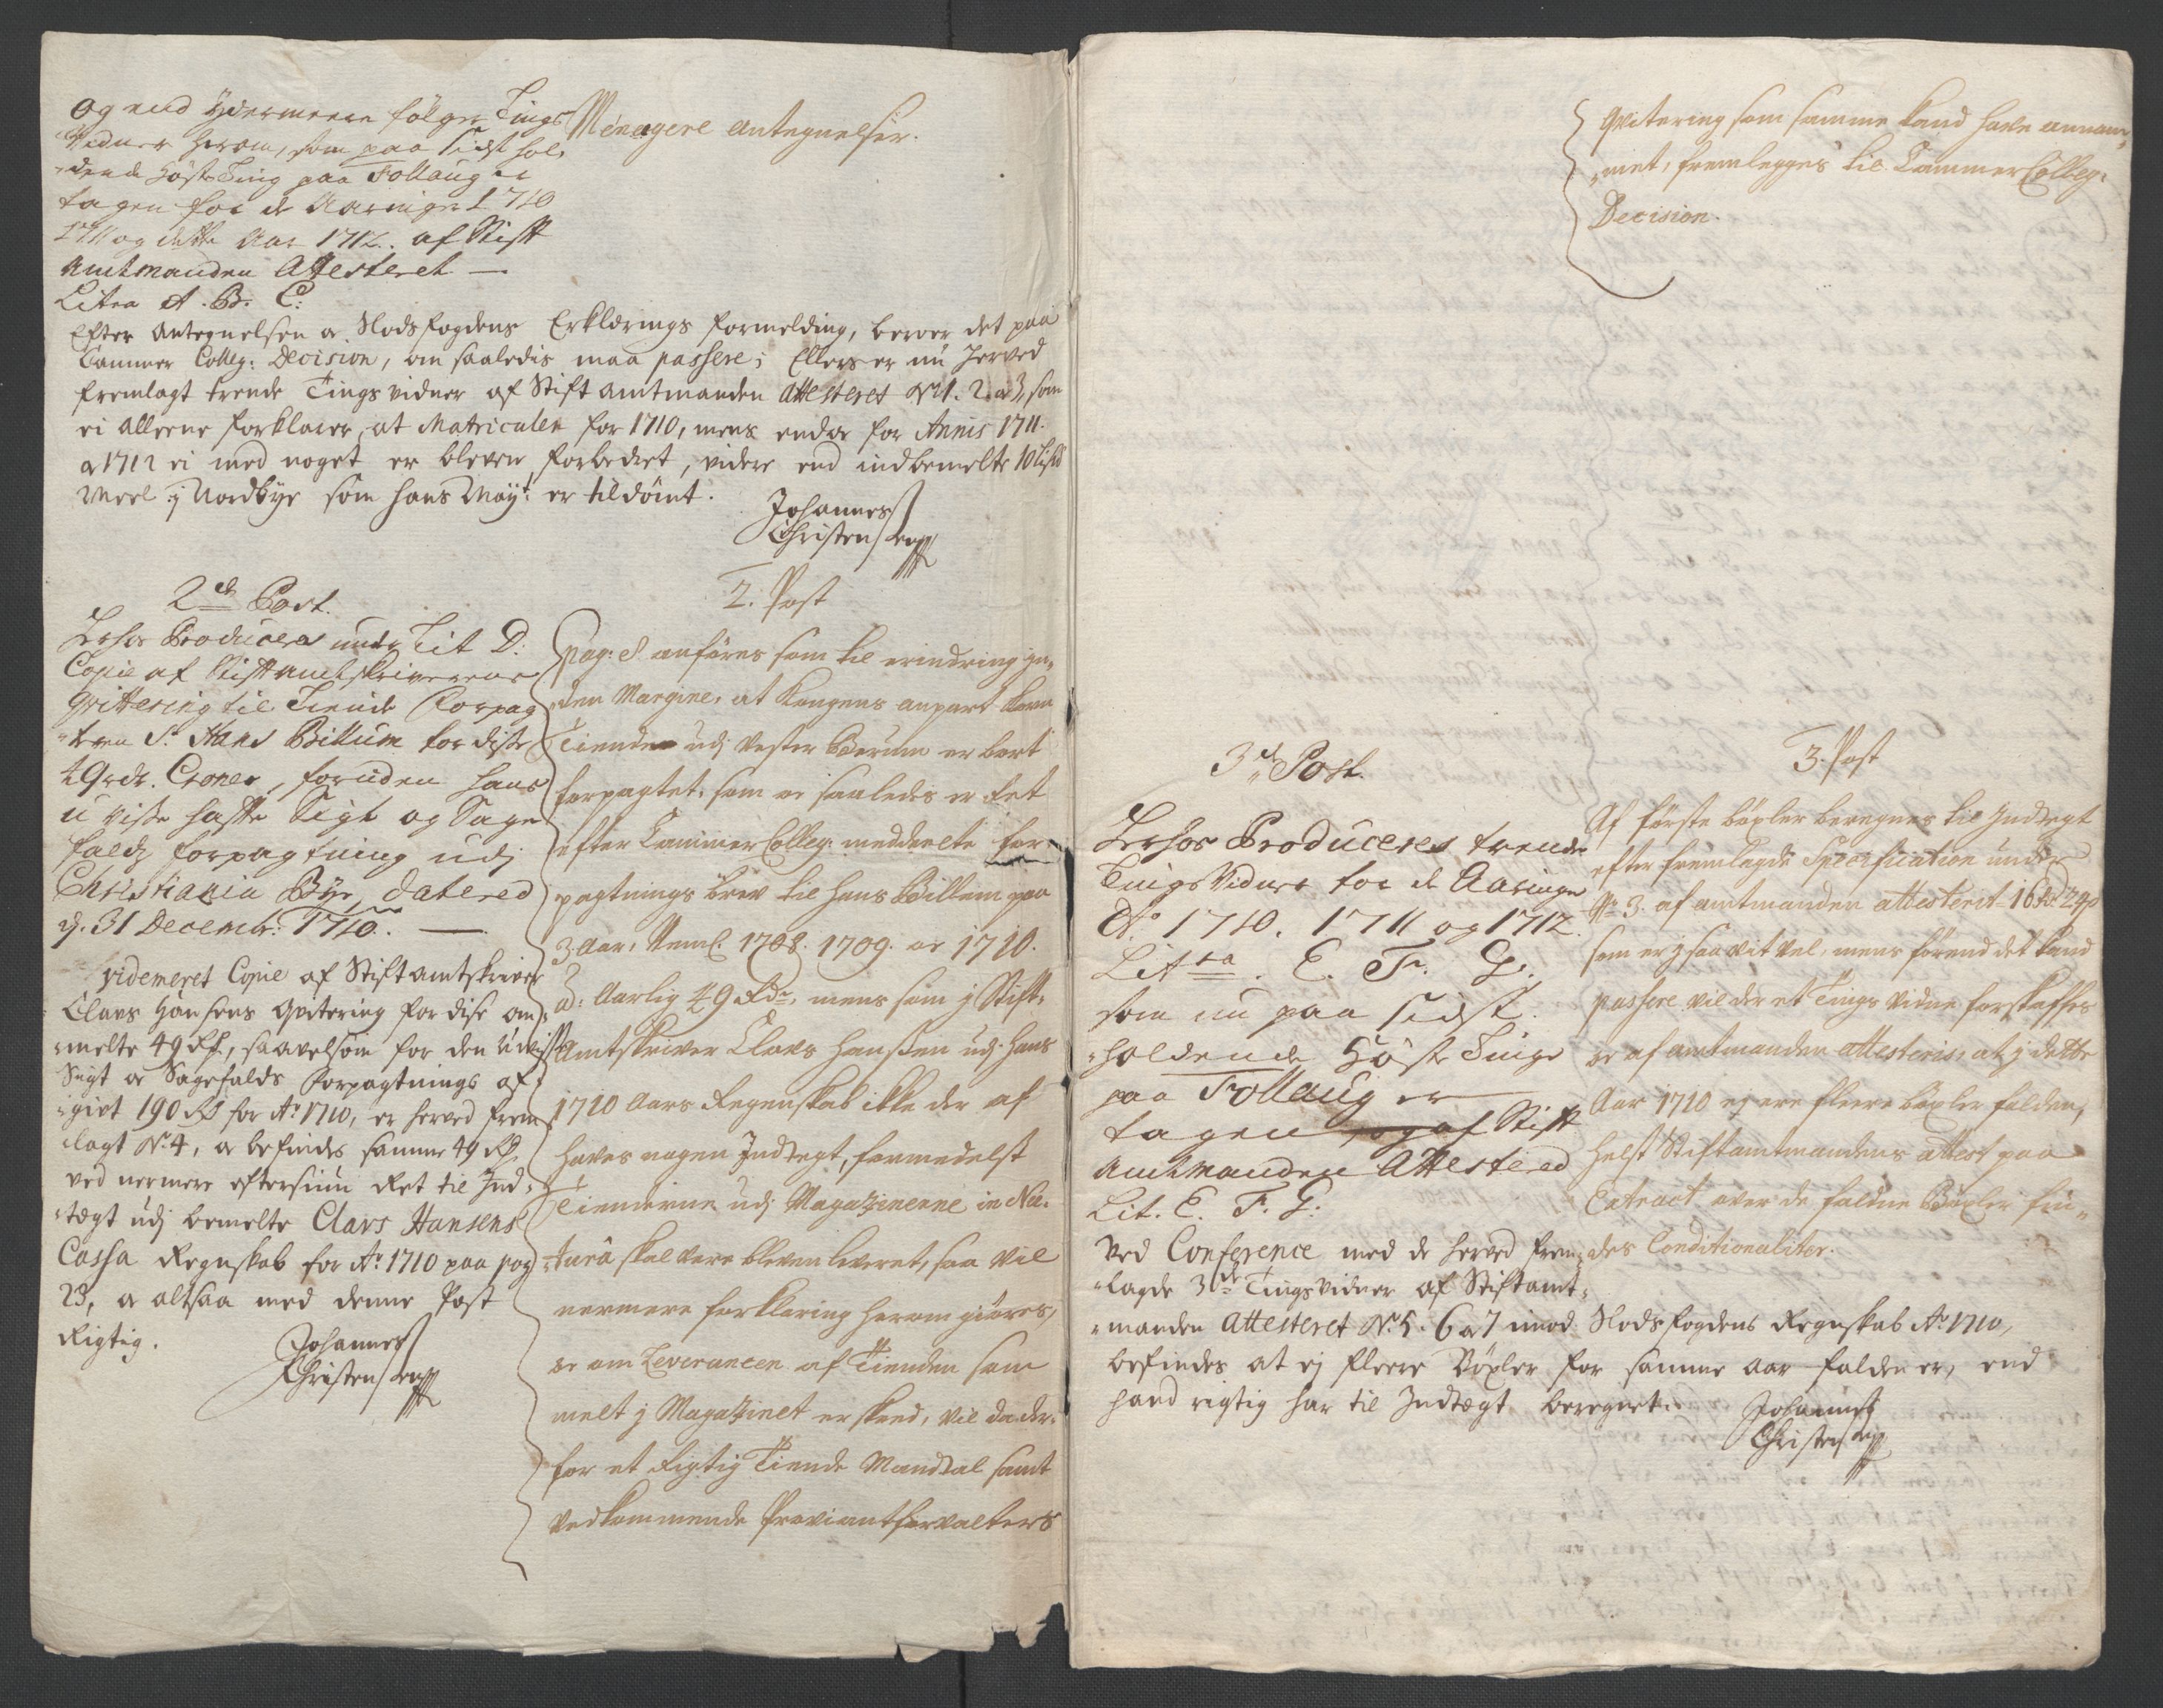 Og end ÿdermeere følger Tings
Vidner herom, som paa sidst hol-
-dende Høste Ting paa Follaug er
tagen for de Aaringer 1710
1711 og dette Aar 1712. af Stift
Amtmanden Attesteret —
Litra A. B. C:
Menagere Antegnelser.
Efter Antegnelsen og Slodsfogdens Erklærings formelding, beroer det paa
Cammer Colleg: Decision, om saaledis maa passere; Ellers er nu herved
fremlagt trende Tingsvidner af Stiftamtmanden Attesteret No 1. 2. og 3, som
ei alleene forklarer, at Matriculen for 1710, mens endog for Annis 1711.
og 1712 ei med noget er bleven forbedret, videre end indbemelte 10 Lispd
Meel i Nordbye som hans Mayt: er tildømt.
Johannes
Christensen
2de Post.
Herhos Produceres under Lit D:
Copie af Stiftamtskriverens
Qvittering til Tiende Forpag
-teren Sr. Hans Billum for disse
49 rdr. Croner, foruden hans
u visse hafte Sigt og Sage
falds forpagtning udj
Christiania Bye, dateret
d. 31 Decembr: 1710. —
Videmeret Copie af Stiftamtskriver
Claus Hansens Qvitering for dise om-
-melte 49 Rd, saavelsom for den Uvisse
Sigt og Sagefalds Forpagtnings af-
-givt 190 Rd for Ao 1710, er herved frem
-lagt No. 4, og befindes samme 49 Rd,
ved nermere eftersiun ret til Ind-
-tegt udj bemelte Claus Hansens
Cassa Regnskab for Ao. 1710 paa pag
23, og altsaa med denne Post
Rigtig.
Johannes
Christensen
2. Post
pag: 8 anføres som til erindring i-
-den Margine, at Kongens anpart Korn
Tiende udj Vester Berum er bort
forpagtet, som og saaledes er det
efter Cammer Colleg: meddeelte for-
pagtnings brev til Hans Billum paa
3 Aar, Neml. 1708. 1709. og 1710.
a: Aarlig 49 Rdr, mens som j Stift-
Amtskriver Claus Hanssen udj hans
1710 Aars Regenskab ikke der af
haves nogen Indtegt, formedelst
Tienderne udj Magazinerne in Na-
-tura skal vere bleven leveret, saa vil
nermere forklaring herom giøres,
og om Leverancen af Tienden som
melt j Magazinet er skeed, vil da der-
for et Rigtig Tiende Mandtal samt
Vedkommende Proviantforvalters
Qvitering som samme kand have annam-
-met, fremlegges til Cammer Colleg:
Decision.
3de Post.
Herhos Produceres trende
Tings Vidner for de Aaringer
Ao 1710. 1711 og 1712.
Litra. E. F. G.
som nu paa sidst.
-holdende Høste Tinge
paa Follaug er
tagen og af Stift
Amtmanden Attestered
Lit. E. F. G:
Ved Conference med de herved frem-
-lagde 3de Tingsvidner af Stiftamt-
-manden Attesteret No. 5. 6 og 7 imod Slodsfogdens Regnskab Ao. 1710,
befindes at ej fleere Böxler for samme aar falden er, end
hand rigtig har til Indtægt beregnet.
Johannes
Christensen
3. Post
Af første böxler beregnes til Indtegt
efter fremlagde Specification under
No 3. af amtmanden attesterit 16 Rd 24 s
som er j saa vit vel, mens førend det kand
passere vil der et Tings Vidne forskaffes
og af amtmanden attesteris, at j dette
Aar 1710 ej ere fleere böxler falden,
helst Stiftamtmandens attest paa
Extract over de faldne Böxler fin-
des Conditionaliter.